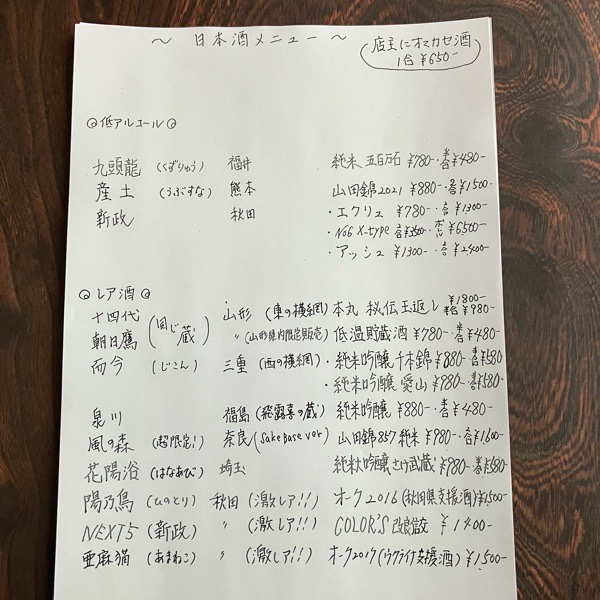 ～ 日本酒メニュー ～
店主にオマカセ酒
1合 ¥650-
◎低アルコール◎
九頭龍 (くずりゅう) 福井 純米 五百万石 ¥780-・半合¥480-
産土 (うぶすな) 熊本 山田錦2021 ¥880-・合¥1500-
新政 秋田 ・エクリュ ¥780-・合¥1300-
・No6 X-type 合¥3500- ボトル¥6500-
・アッシュ ¥1300-・合¥2400-
◎レア酒◎
十四代 (同じ蔵) 山形 (東の横綱) 本丸 秘伝玉返し ¥1800- 半合¥980-
朝日鷹 〃 (山形県内限定販売) 低温貯蔵酒 ¥780-・半合¥480-
而今 (じこん) 三重 (西の横綱) ・純米吟醸 千本錦 ¥880-・半合¥580-
・純米吟醸 愛山 ¥980-・半合¥580-
泉川 福島 (飛露喜の蔵) 純米吟醸 ¥880-・半合¥480-
風の森 (超限定!) 奈良 (Sake base ver) 山田錦857 純米 ¥980-・合¥1600-
花陽浴 (はなあび) 埼玉 純米大吟醸 さけ武蔵 ¥980-・半合¥580-
陽乃鳥 (ひのとり) 秋田 (激レア!!) オーク2016 (秋田県支援酒) ¥1,500-
NEXT5 (新政) 〃 (激レア!!) COLOR'S ¥1400-
亜麻猫 (あまねこ) 〃 (激レア!!) オーク2017 (ウクライナ支援酒) ¥1,500-